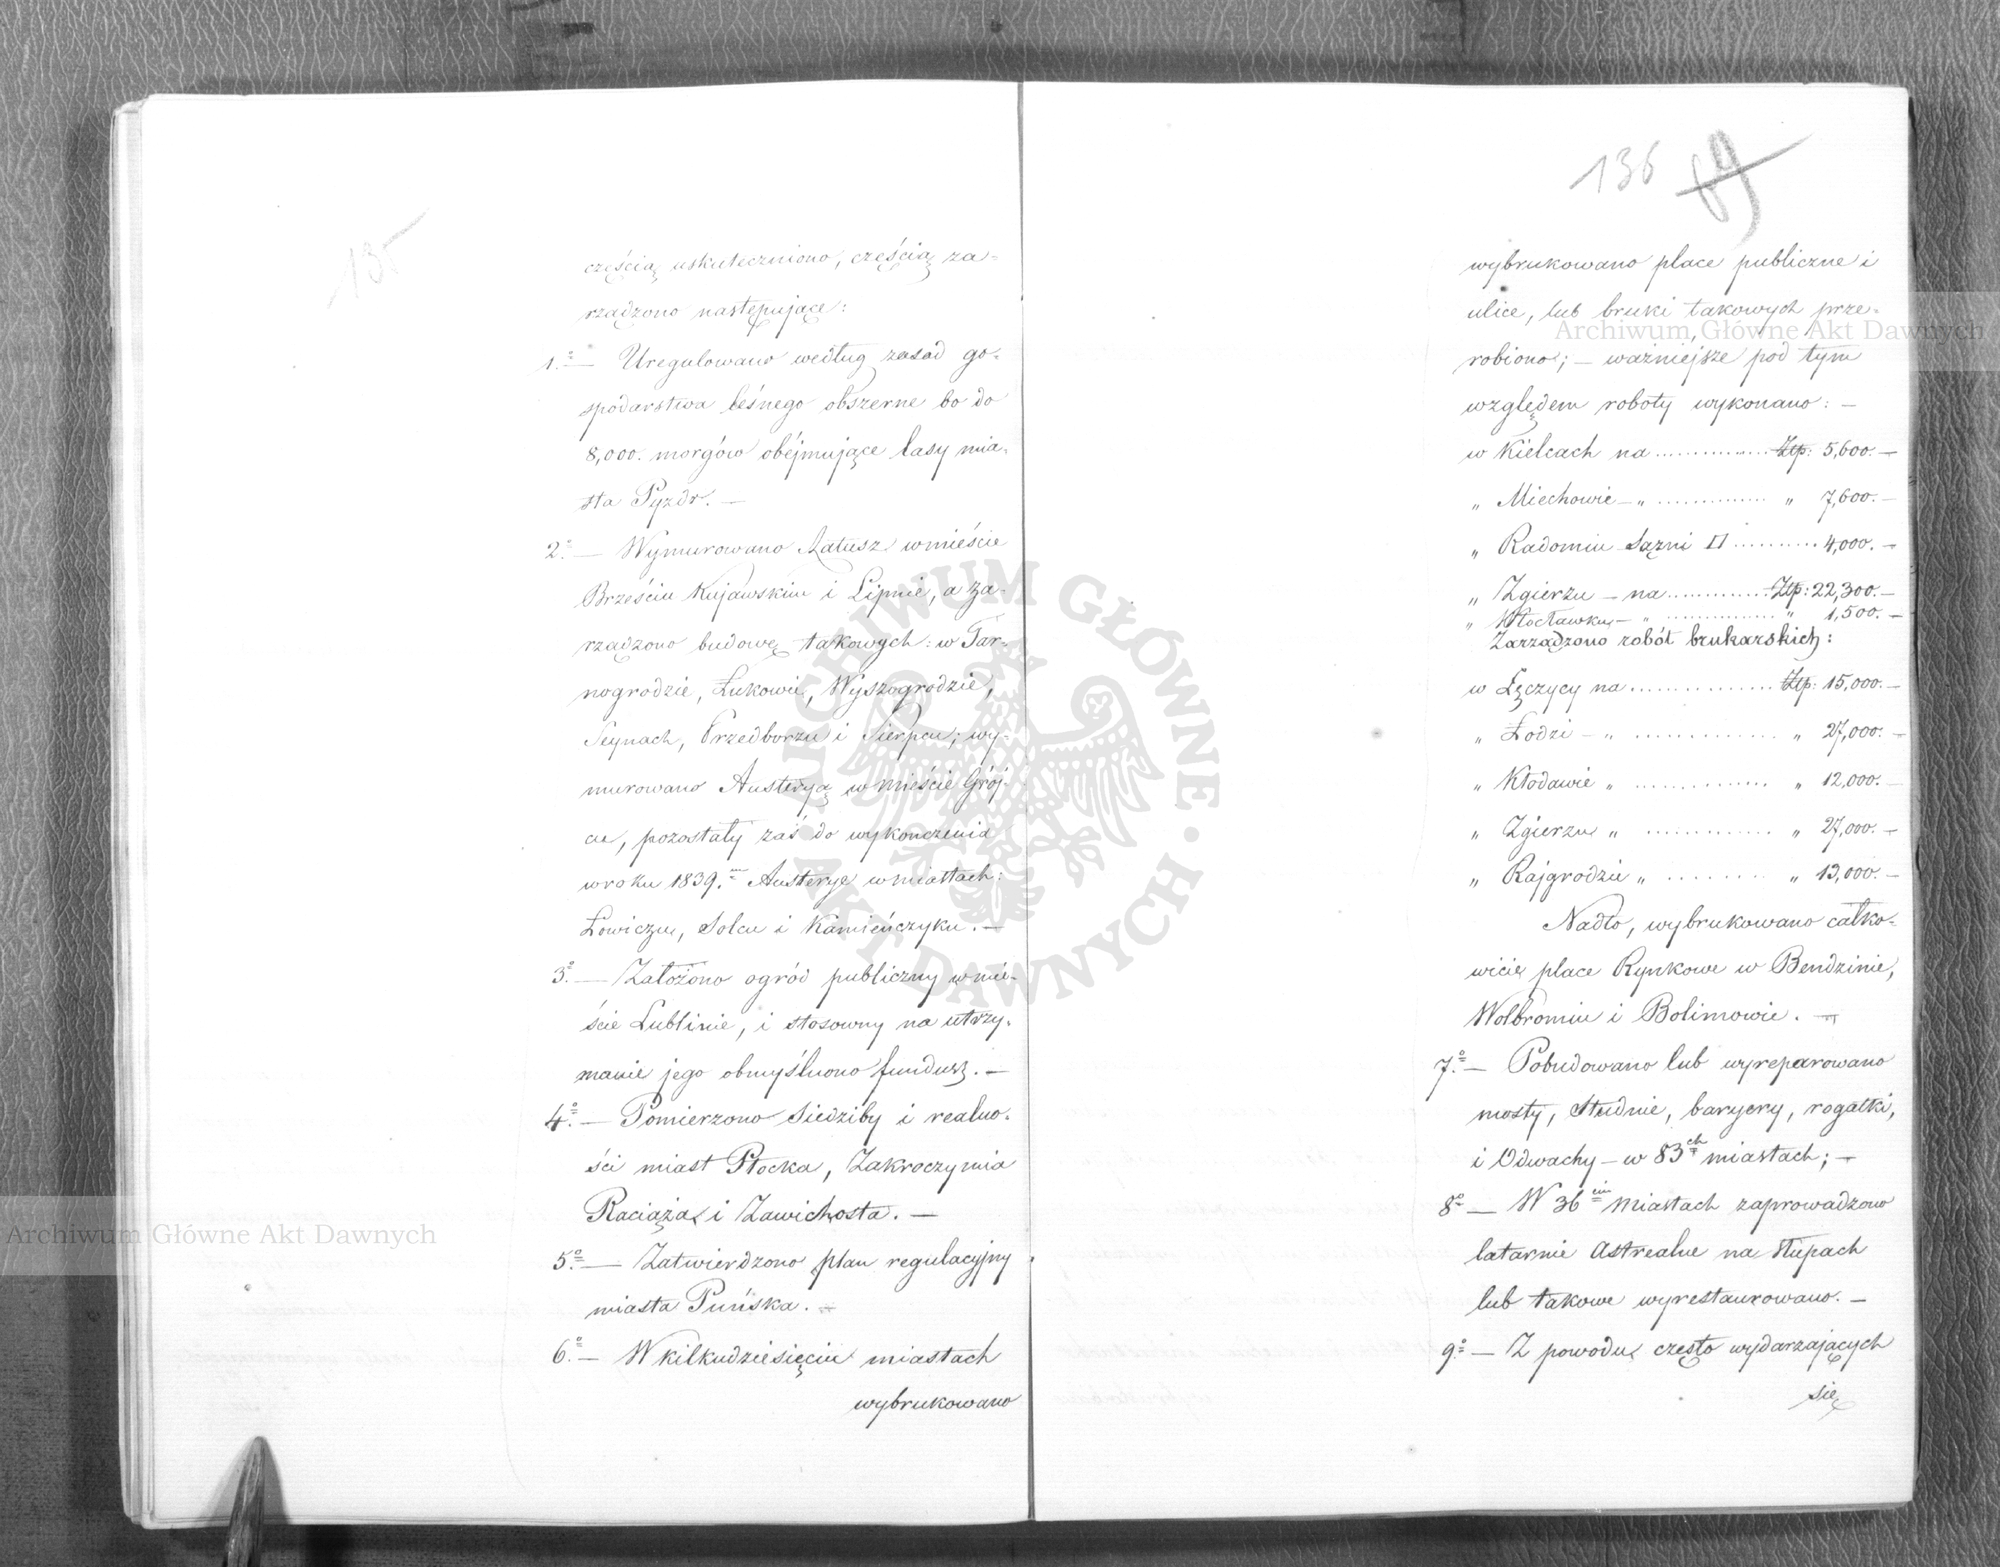 135
częścią uskuteczniono, częścią za-
rządzono następujące:
1.° — Uregulowano według zasad go-
spodarstwa leśnego obszerne bo do
8,000. morgów obéjmujące lasy mia-
sta Pyzdr. —
2.° — Wymurowano Ratusz w mieście
Brześciu Kujawskim i Lipnie, a za-
rządzono budowę takowych: w Tar-
nogrodzie, Łukowie, Wyszogrodzie,
Seynach, Przedborzu i Sierpcu; wy-
murowano Austeryą w mieście Grój-
cu, pozostały zaś do wykończenia
w roku 1839.m Austerye w miastach:
Łowiczu, Solcu i Kamieńczyku. —
3.° — Założono ogród publiczny w mie-
ście Lublinie, i stosowny na utrzy-
manie jego obmyślono fundusz. —
4.° — Pomierzono Siedziby i realno-
ści miast Płocka, Zakroczymia
Raciąża i Zawichosta. —
5.° — Zatwierdzono plan regulacyjny
miasta Puńska. —
6.° — W kilkudziesięciu miastach
wybrukowano
136 69
wybrukowano place publiczne i
ulice, lub bruki takowych prze-
robiono; — ważniejsze pod tym
względem roboty wykonano: —
w Kielcach na .............. Złp: 5,600. —
„ Miechowie — „ ............. „ 7,600. —
„ Radomiu Sążni □ .......... 4,000. —
„ Zgierzu — na ............ Złp: 22,300. —
„ Włocławku — „ ............... „ 1,500. —
Zarządzono robót brukarskich:
w Łęczycy na ................ Złp: 15,000. —
„ Łodzi — „ ............... „ 27,000. —
„ Kłodawie „ .............. „ 12,000. —
„ Zgierzu „ ............. „ 27,000. —
„ Rajgrodzie „ .......... „ 13,000. —
Nadto, wybrukowano całko-
wicie place Rynkowe w Bendzinie,
Wolbromiu i Bolimowie. —
7.° — Pobudowano lub wyreparowano
mosty, studnie, baryery, rogatki,
i Odwachy — w 83ch miastach; —
8.° — W 36ciu miastach zaprowadzono
latarnie astrealne na słupach
lub takowe wyrestaurowano. —
9.° — Z powodu często wydarzających
się
Archiwum Główne Akt Dawnych
Archiwum Główne Akt Dawnych
ARCHIWUM GŁÓWNE · AKT DAWNYCH ·